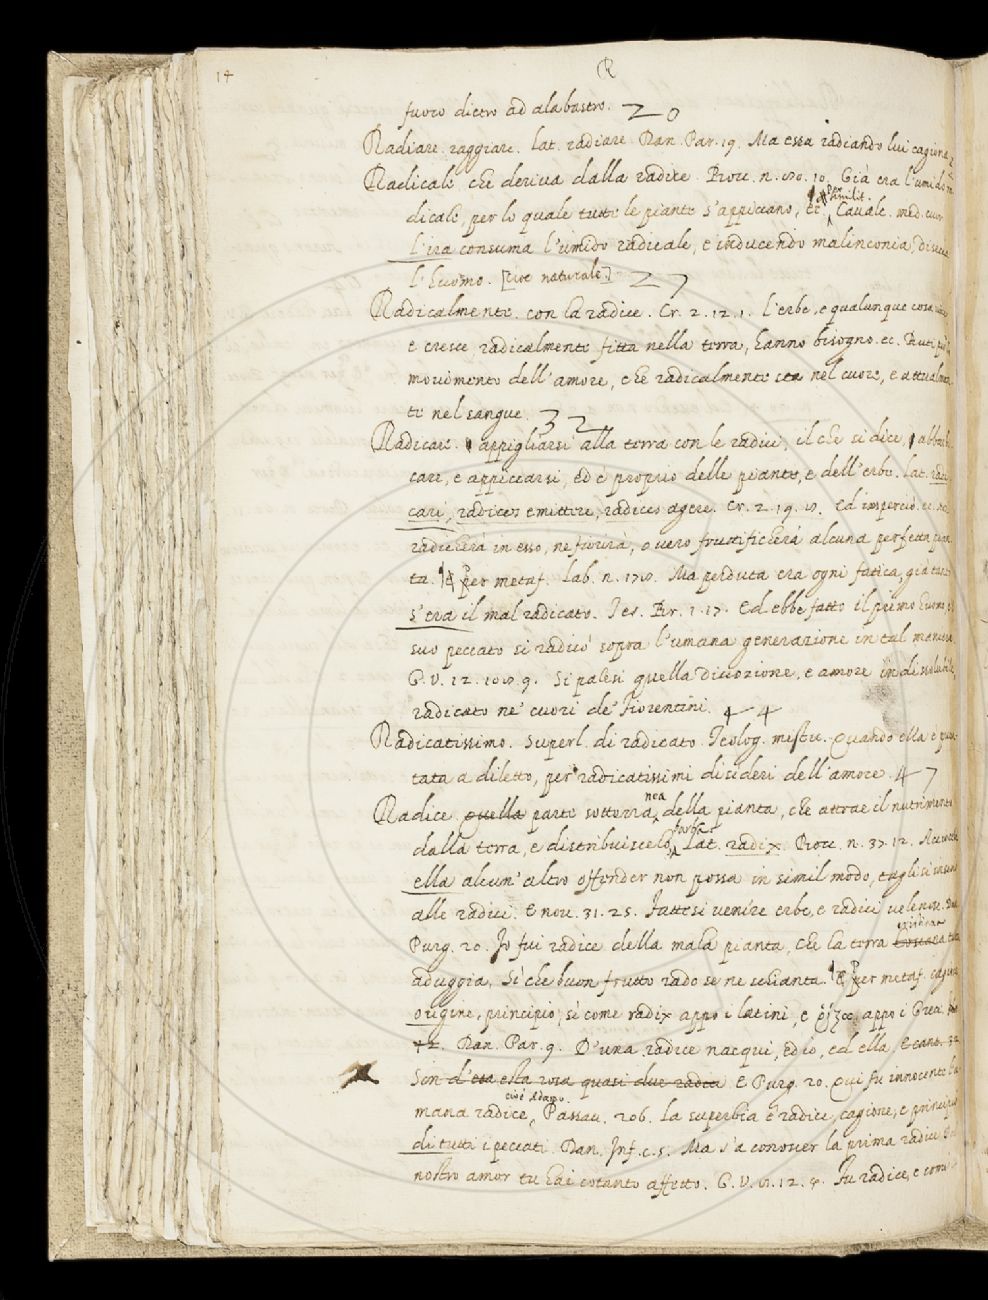 14
R
fuoro dietro ad alabastro. 20
Radiare. raggiare. Lat. radiare. Dan. Par. 19. Ma essa radiando lui cagiona
Radicale, che deriva dalla radice. Bocc. n. 50. 10. Già era l'umido ra
dicale, per lo quale tutte le piante s'appiccano, ec. ¶ Per similit. Cavalc. med. cuor
L'ira consuma l'umido radicale, e inducendo malinconia, disecca
l'huomo. [cioè naturale] 27
Radicalmente. con la radice. Cr. 2. 12. 1. L'erbe, e qualunque cosa
e cresce, radicalmente fitta nella terra, hanno bisogno. ec. But.
movimento dell'amore, che radicalmente sta nel cuore, e attualmen
te nel sangue. 32
Radicare. appigliarsi alla terra con le radici, il che si dice, abbarbi
care, e appiccarsi, ed è proprio delle piante, e dell'erbe. Lat. radi
cari, radices emittere, radices agere. Cr. 2. 19. 5. Ed imperciò. ec. ne
radicherà in esso, ne fiorirà, o vero fruttificherà alcuna perfetta pian
ta. ¶ per metaf. Lab. n. 175. Ma perduta era ogni fatica, già tanto
s'era il mal radicato. Tes. Br. 1. 17. Ed ebbe fatto il primo huomo
suo peccato si radicò sopra l'umana generazione in tal maniera
G. V. 12. 108. 9. Si palesi quella divozione, e amore indissolubile
radicato ne' cuori de' Fiorentini. 44
Radicatissimo. Superl. di radicato. Teolog. mistic. Quando ella è por
tata a diletto, per radicatissimi disideri dell'amore. 47
Radice quella parte sotterranea della pianta, che attrae il nutrimento
dalla terra, e distribuiscelo, barba. Lat. radix. Bocc. n. 37. 12. Acciocchè
ella alcun'altro offender non possa in simil modo, taglisi insino
alle radici. E nov. 31. 25. Fattesi venire erbe, e radici velenose. Dan.
Purg. 20. Io fui radice della mala pianta, che la terra Toscana cristiana tutta
aduggia, Si che buon frutto rado se ne schianta. ¶ per metaf. cagione
origine, principio, si come radix appo i latini, e ῥίζα appo i Greci.
42. Dan. Par. 9. D'una radice nacqui, ed io, ed ella E cant. 32
Son d'esta rosa quasi due radici E Purg. 20. Qui fu innocente l'u
mana radice, cioè Adamo. Passav. 206. La superbia è radice, cagione, e principio
di tutti i peccati. Dan. Inf. c. 5. Ma s'a conoscer la prima radice Del
nostro amor tu hai cotanto affetto. G. V. 5. 12. 4. Fu radice, e comi